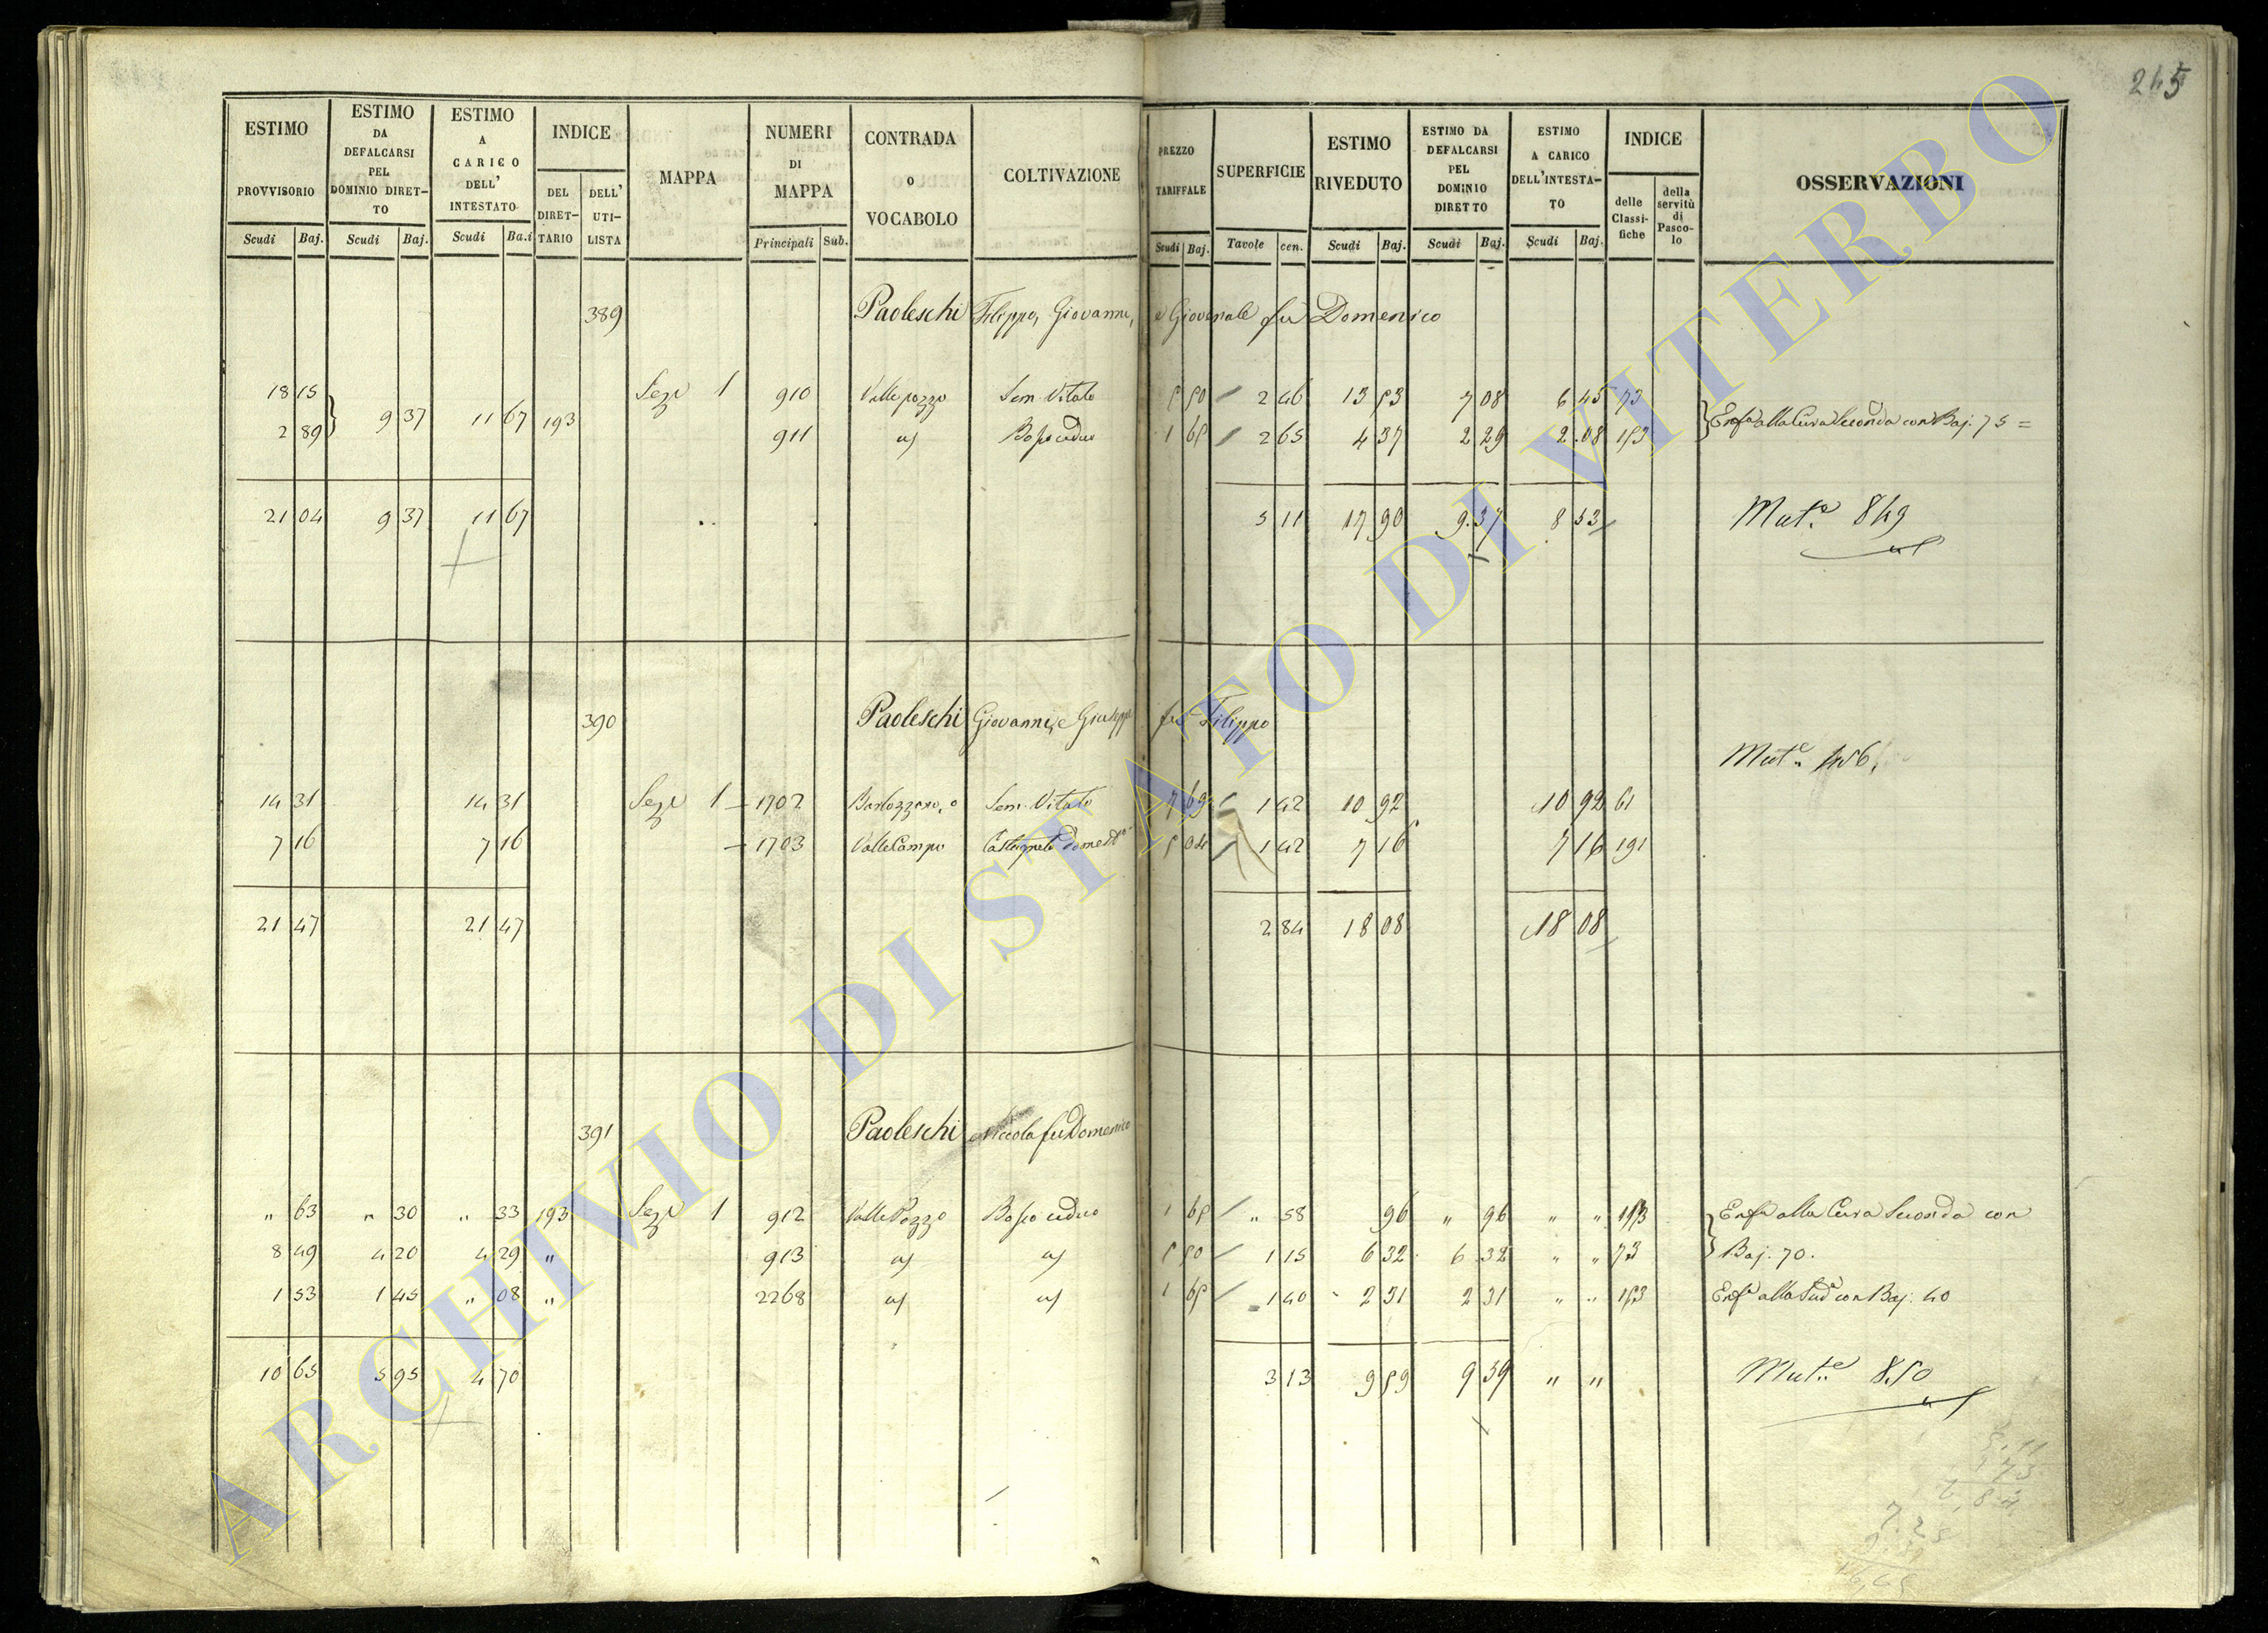 245
ESTIMO PROVVISORIO
ESTIMO DA DEFALCARSI PEL DOMINIO DIRET-TO
ESTIMO A CARICO DELL' INTESTATO
INDICE
DEL DIRET-TARIO
DELL' UTI-LISTA
MAPPA
NUMERI DI MAPPA
CONTRADA o VOCABOLO
COLTIVAZIONE
PREZZO TARIFFALE
SUPERFICIE
ESTIMO RIVEDUTO
ESTIMO DA DEFALCARSI PEL DOMINIO DIRETTO
ESTIMO A CARICO DELL'INTESTA-TO
INDICE
delle Classi-fiche
della servitù di Pasco-lo
OSSERVAZIONI
Scudi Baj. Scudi Baj. Scudi Ba.i Principali Sub. Scudi Baj. Tavole cen. Scudi Baj. Scudi Baj. Scudi Baj.
389 Paoleschi Filippo, Giovanni, e Giovenale fu Domenico
18 15 Seze 1 910 Valle pozzo Sem. Vitato 5 50 2 46 13 53 7 08 6 45 73
9 37 11 67 193 Enfa alla Cura Seconda con Baj. 75 =
2 89 911 Bosco ceduo 1 65 2 65 4 37 2 29 2 08 153
21 04 9 37 11 67 5 11 17 90 9.37 8 53 Mut.e 849
390 Paoleschi Giovanni, e Giuseppe fu Filippo
Mut.e 456.
14 31 14 31 Seze 1 1702 Sem. Vitato 7 69 1 42 10 92 10 92 61
7 16 7 16 1703 Valle Campo Castagneto Domest.o 5 04 1 42 7 16 7 16 191
21 47 21 47 2 84 18 08 18 08
391 Paoleschi Niccola fu Domenico
" 63 " 30 " 33 193 Seze 1 912 Valle Pozzo Bosco ceduo 1 65 " 58 96 " 96 " " 153 Enfa alla Cura Seconda con
8 49 4 20 4 29 " 913 5 50 1 15 6 32 6 32 " " 73 Baj. 70.
1 53 1 45 " 08 " 2268 1 65 1 40 2 31 2 31 " " 153 Enfa alla Sud.a con Baj. 40
10 65 5 95 4 70 3 13 9 59 9 59 " " Mut.e 850
ARCHIVIO DI STATO DI VITERBO